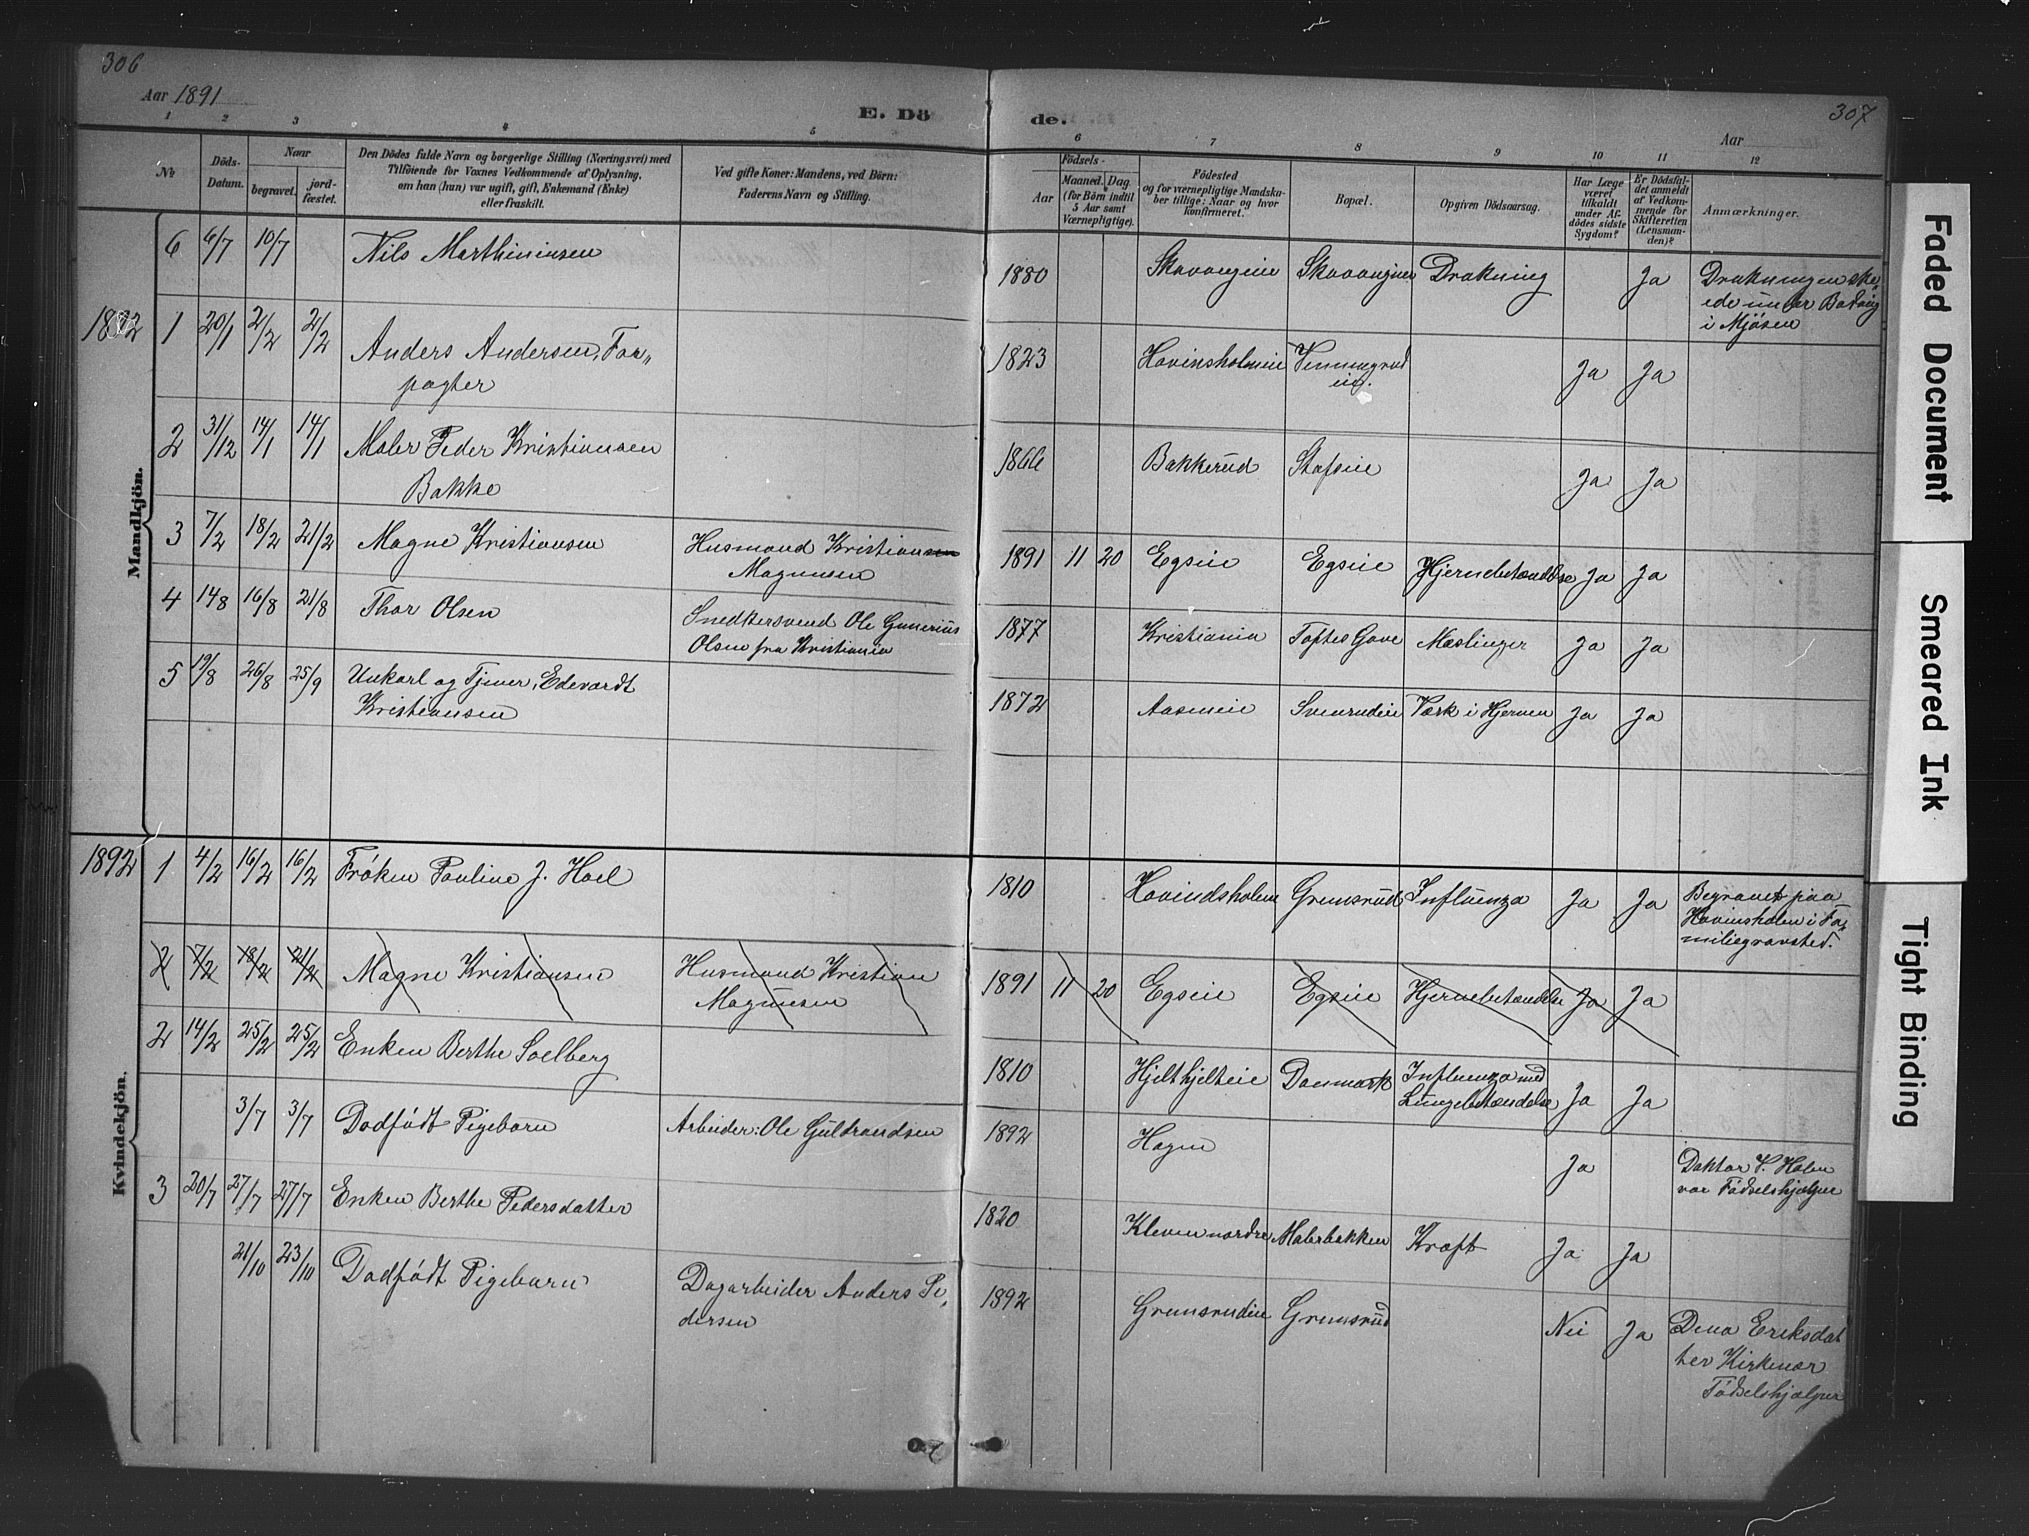 306
Aar 1891
E. Dö
de.
307
Aar
1 2 3 4 5 6 7 8 9 10 11 12
No
Döds-
Datum.
Naar
begravet.
jord-
fæstet.
Den Dödes fulde Navn og borgerlige Stilling (Næringsvei) med
Tilföiende for Voxnes Vedkommende af Oplysning,
om han (hun) var ugift, gift, Enkemand (Enke)
eller fraskilt.
Ved gifte Koner: Mandens, ved Börn:
Faderens Navn og Stilling.
Födsels-
Aar
Maaned. Dag.
(for Börn indtil
5 Aar samt
Værnepligtige).
Födested
og for værnepligtige Mandska-
ber tillige: Naar og hvor
konfirmeret.
Bopæl.
Opgiven Dödsaarsag.
Har Læge
været
tilkaldt
under Af-
dödes sidste
Sygdom?
Er Dödsfal-
det anmeldt
af Vedkom-
mende for
Skifteretten
(Lensman-
den)?
Anmærkninger.
Mandkjön.
6 6/7 10/7 Nils Marthininsen 1880 Skavangeie Skavangeie Drukning Ja Drukningen ske,,
ede under Badning
i Mjösen
1892 1 20/1 2/2 2/2 Anders Andersen, For,,
pagter 1823 Hovinsholmeie Ja Ja
2 31/12 14/1 14/1 Maler Peder Kristiansen
Bakke 1866 Bakkerud Stafseie Ja Ja
3 7/2 18/2 21/2 Magne Kristiansen Husmand Kristiansen
Magnusen 1891 11 20 Egseie Egseie Hjernebetændelse Ja Ja
4 14/8 16/8 21/8 Thor Olsen Snedkersvend Ole Gunerius
Olsen fra Kristiania 1877 Kristiania Toftes Gave Mæslinger Ja Ja
5 19/8 26/8 25/9 Unkarl og Tjener, Edevardt
Kristiansen 1872 Aasmeie Svenrudeie Værk i Hjernen Ja Ja
Kvindekjön.
1892 1 4/2 16/2 16/2 Frøken Pauline J. Hoel 1810 Hovindsholm Gremsrud Influenza Ja Ja Begravet paa
Hovinsholm i Fa,,
miliegravsted.
2 7/2 18/2 21/2 Magne Kristiansen Husmand Kristian
Magnusen 1891 11 20 Egseie Egseie Hjernebetændelse Ja Ja
2 14/2 25/2 25/2 Enken Berthe Soelberg 1810 Hjelthjelteie Danmark Influenza med
Lungebetændelse Ja Ja
3/7 3/7 Dødfødt Pigebarn Arbeider: Ole Guldrandsen 1892 Hagen Ja Doktor V. Holm
var Fødselshjælper
3 20/7 27/7 27/7 Enken Berthe Pedersdatter 1820 Kleven nordre Malerbakken Kræft Ja Ja
21/10 23/10 Dødfødt Pigebarn Dagarbeider Anders Pe,,
dersen 1892 Gremsrudeie Gremsrud Nei Ja Dina Eriksdat
ter Kirkenær
Fødselshjælper
Faded Document
Smeared Ink
Tight Binding